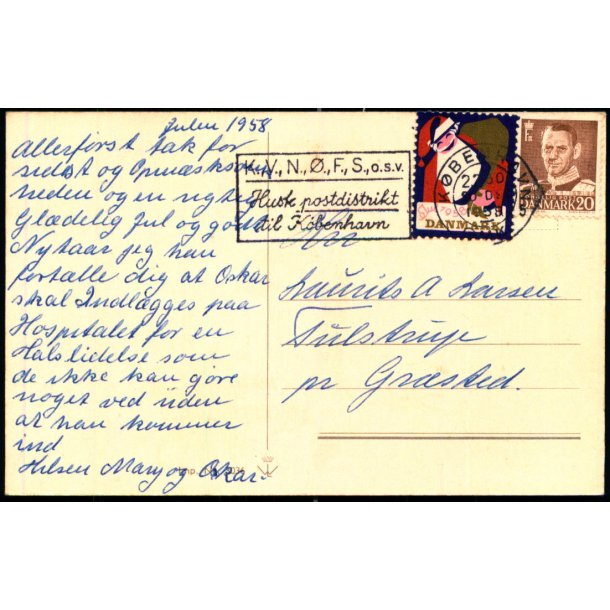 Julen 1958
Allerførst tak for
sidst og Opmærksom
heden og en rigtig
Glædelig Jul og godt
Nytaar jeg kan
fortælle dig at Oskar
skal Indlægges paa
Hospitalet for en
Halslidelse som
de ikke kan gøre
noget ved uden
at han kommer
ind
Hilsen Mary og Oskar.
K.,V.,N.,Ø.,F.,S.,o.s.v.
Husk postdistrikt
til København
KØBENHAVN
1958
DANMARK
DANMARK 20
Hr
Laurits A Larsen
Tulstrup
pr Græsted.